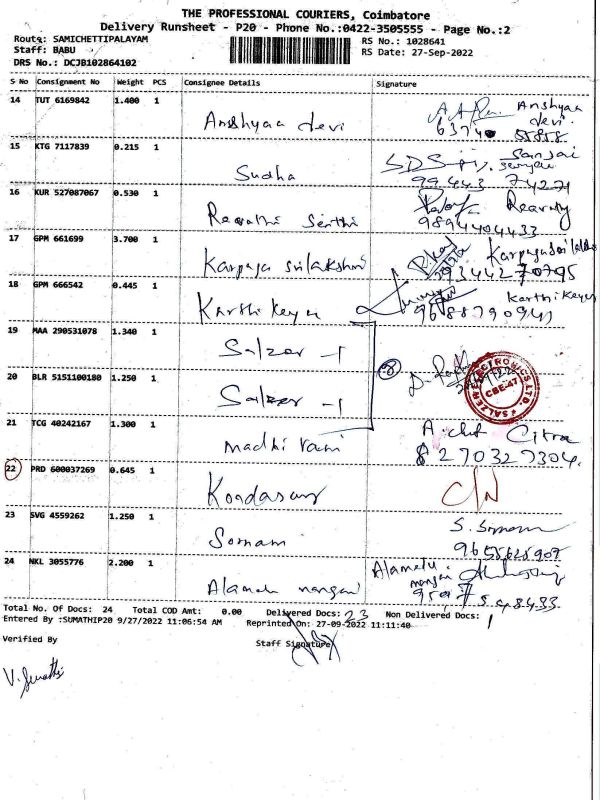 THE PROFESSIONAL COURIERS, Coimbatore
Delivery Runsheet - P20 - Phone No.:0422-3505555 - Page No.:2
Route: SAMICHETTIPALAYAM RS No.: 1028641
Staff: BABU RS Date: 27-Sep-2022
DRS No.: DCJB102864102
S No Consignment No Weight PCS Consignee Details Signature
14 TUT 6169842 1.400 1 Anshyaa devi Anshyaa devi
15 KTG 7117839 0.215 1 Sudha Sanjai
99443 74271
16 KUR 527087067 0.530 1 Revathi Senthi
9894404433
17 GPM 661699 3.700 1 Karpaga srilakshmi
9344270795
18 GPM 666542 0.445 1 Karthikeyan Karthikeyan
19 MAA 290531078 1.340 1 Salzer -1
20 BLR 5151100180 1.250 1 Salzer -1
SALZER ELECTRONICS LTD. CBE-47
21 TCG 40242167 1.300 1 madhi vani Citra
8270327304
22 PRD 600037269 0.645 1 C/N
23 SVG 4559262 1.250 1 Sornam
24 NKL 3055776 2.200 1 Alamelu mangai Alamelu mangai
Total No. Of Docs: 24 Total COD Amt: 0.00 Delivered Docs: 23 Non Delivered Docs: 1
Entered By :SUMATHIP20 9/27/2022 11:06:54 AM Reprinted On: 27-09-2022 11:11:40
Verified By Staff Signature
V. Sumathi